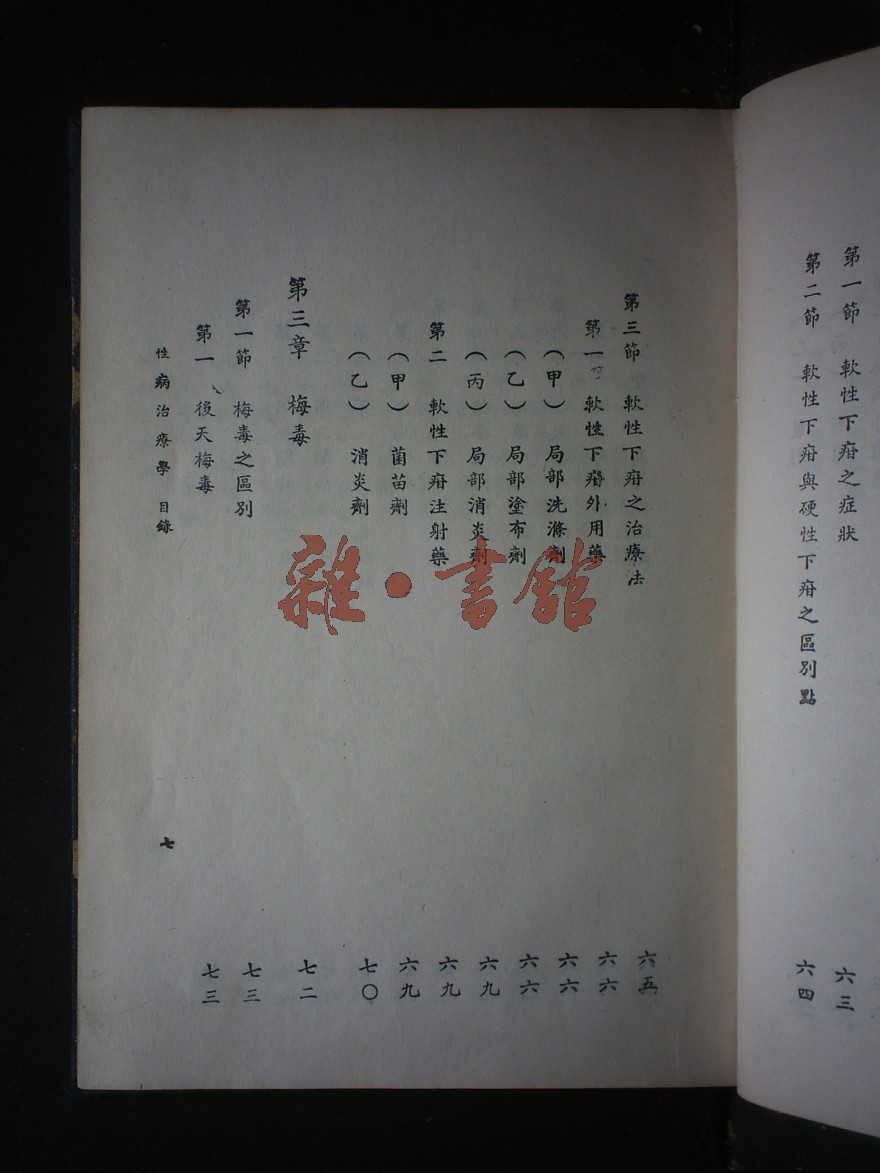 第一節 軟性下疳之症狀 六三
第二節 軟性下疳與硬性下疳之區別點 六四
第三節 軟性下疳之治療法 六五
第一 軟性下疳外用藥 六六
(甲) 局部洗滌劑 六六
(乙) 局部塗布劑 六六
(丙) 局部消炎劑 六九
第二 軟性下疳注射藥 六九
(甲) 菌苗劑 六九
(乙) 消炎劑 七〇
第三章 梅毒 七二
第一節 梅毒之區別 七三
第一 後天梅毒 七三
性病治療學 目錄 七
雜·書館